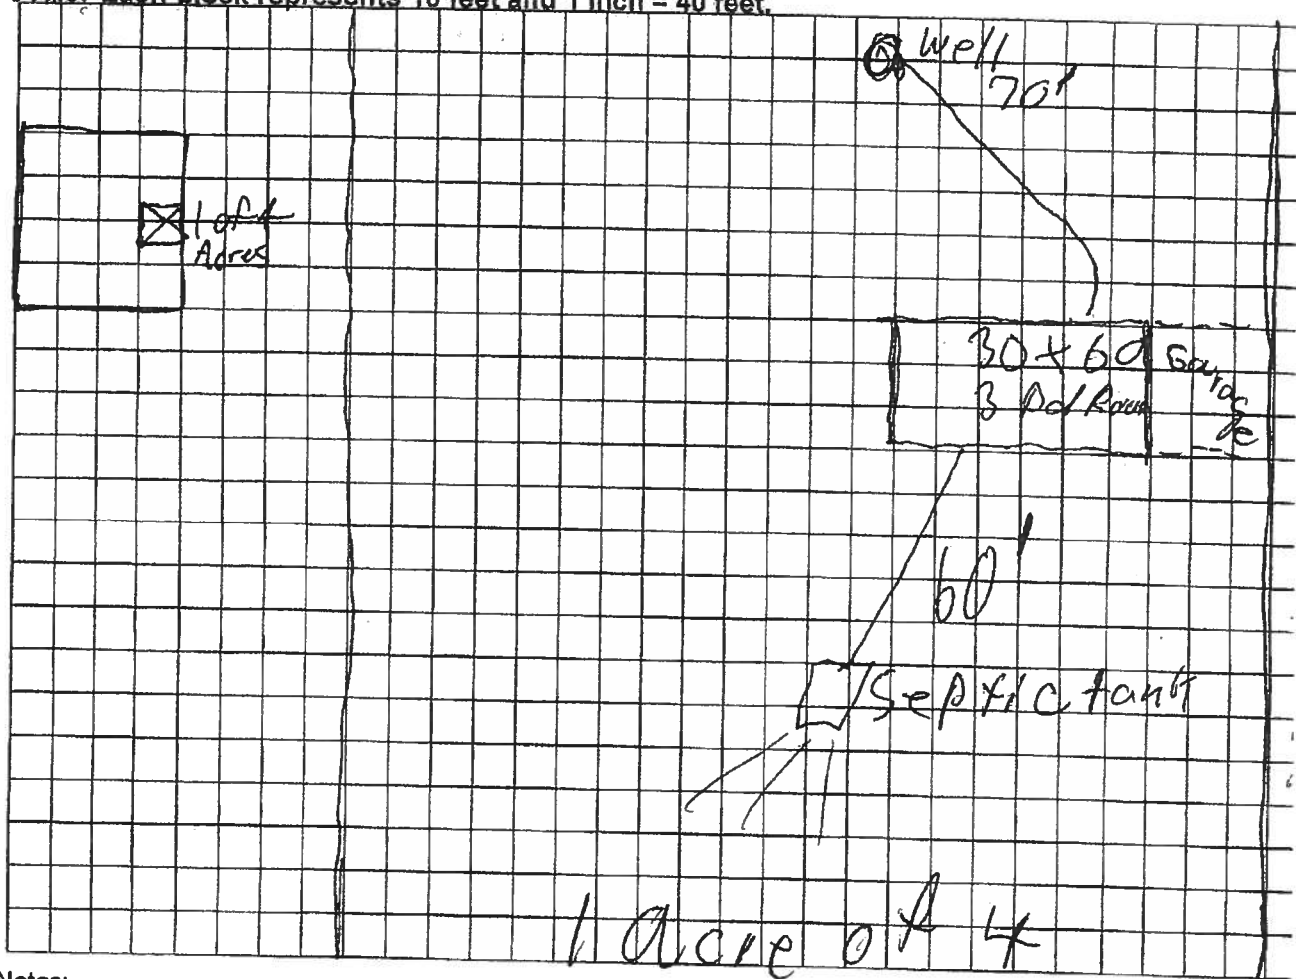 Each block represents 10 feet and 1 inch = 40 feet.
Well
70'
1 of 4
Acres
30 x 60
3 Bd Room
Garage
60'
Septic tank
1 Acre of 4
Notes: